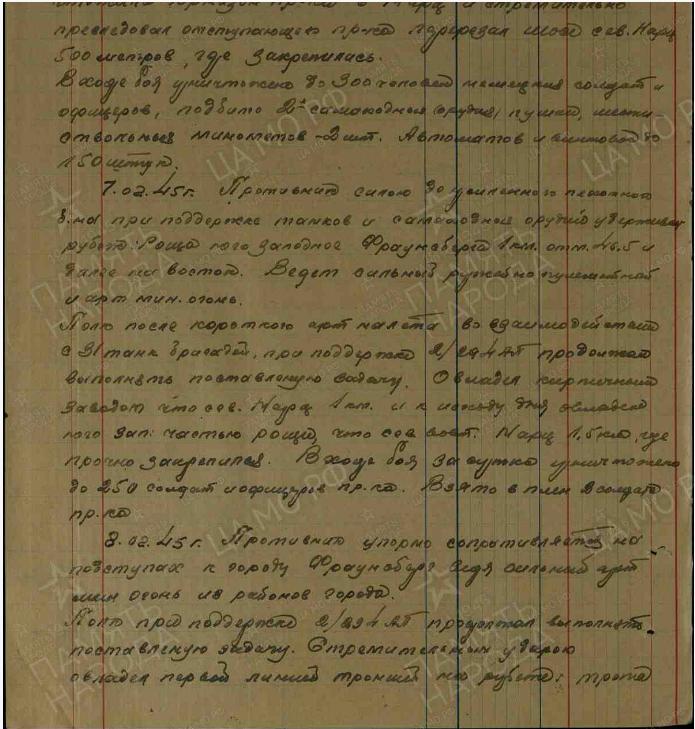 преследовал отступающего пр-ка перерезал шоссе сев. Нарц
500 метров, где закрепились.
В ходе боя уничтожено до 300 человек немецких солдат и
офицеров, подбито 2 самоходных (орудия) пушки, шести
ствольных минометов - 2 шт. Автоматов и винтовок до
150 штук.
7.02.45 г. Противник силою до усиленного пехотного
б-на при поддержке танков и самоходных орудий удерживает
рубеж: Роща юго западнее Фраунсберга 1 км. отм. 46.5 и
далее на восток. Ведет сильный ружейно пулеметной
и арт мин. огонь.
Полк после короткого арт налета во взаимодействии
с 31 танк бригадой, при поддержке 2/294 АП продолжал
выполнять поставленую задачу. Овладел кирпичным
заводом что сев. Нарц 1 км. и к исходу дня овладел
юго зап. частью рощи, что сев вост. Нарц 1,5 км, где
прочно закрепился. В ходе боя за сутки уничтожено
до 250 солдат и офицеров пр-ка. Взято в плен 2 солдата
пр-ка
8.02.45 г. Противник упорно сопротивляется на
подступах к городу Фраунсберг ведя сильный арт
мин огонь из районов города.
Полк при поддержке 2/294 АП продолжал выполнять
поставленую задачу. Стремительным ударом
овладел первой линией траншей на рубеже:
ПАМЯТЬ НАРОДА
ЦАМО РФ